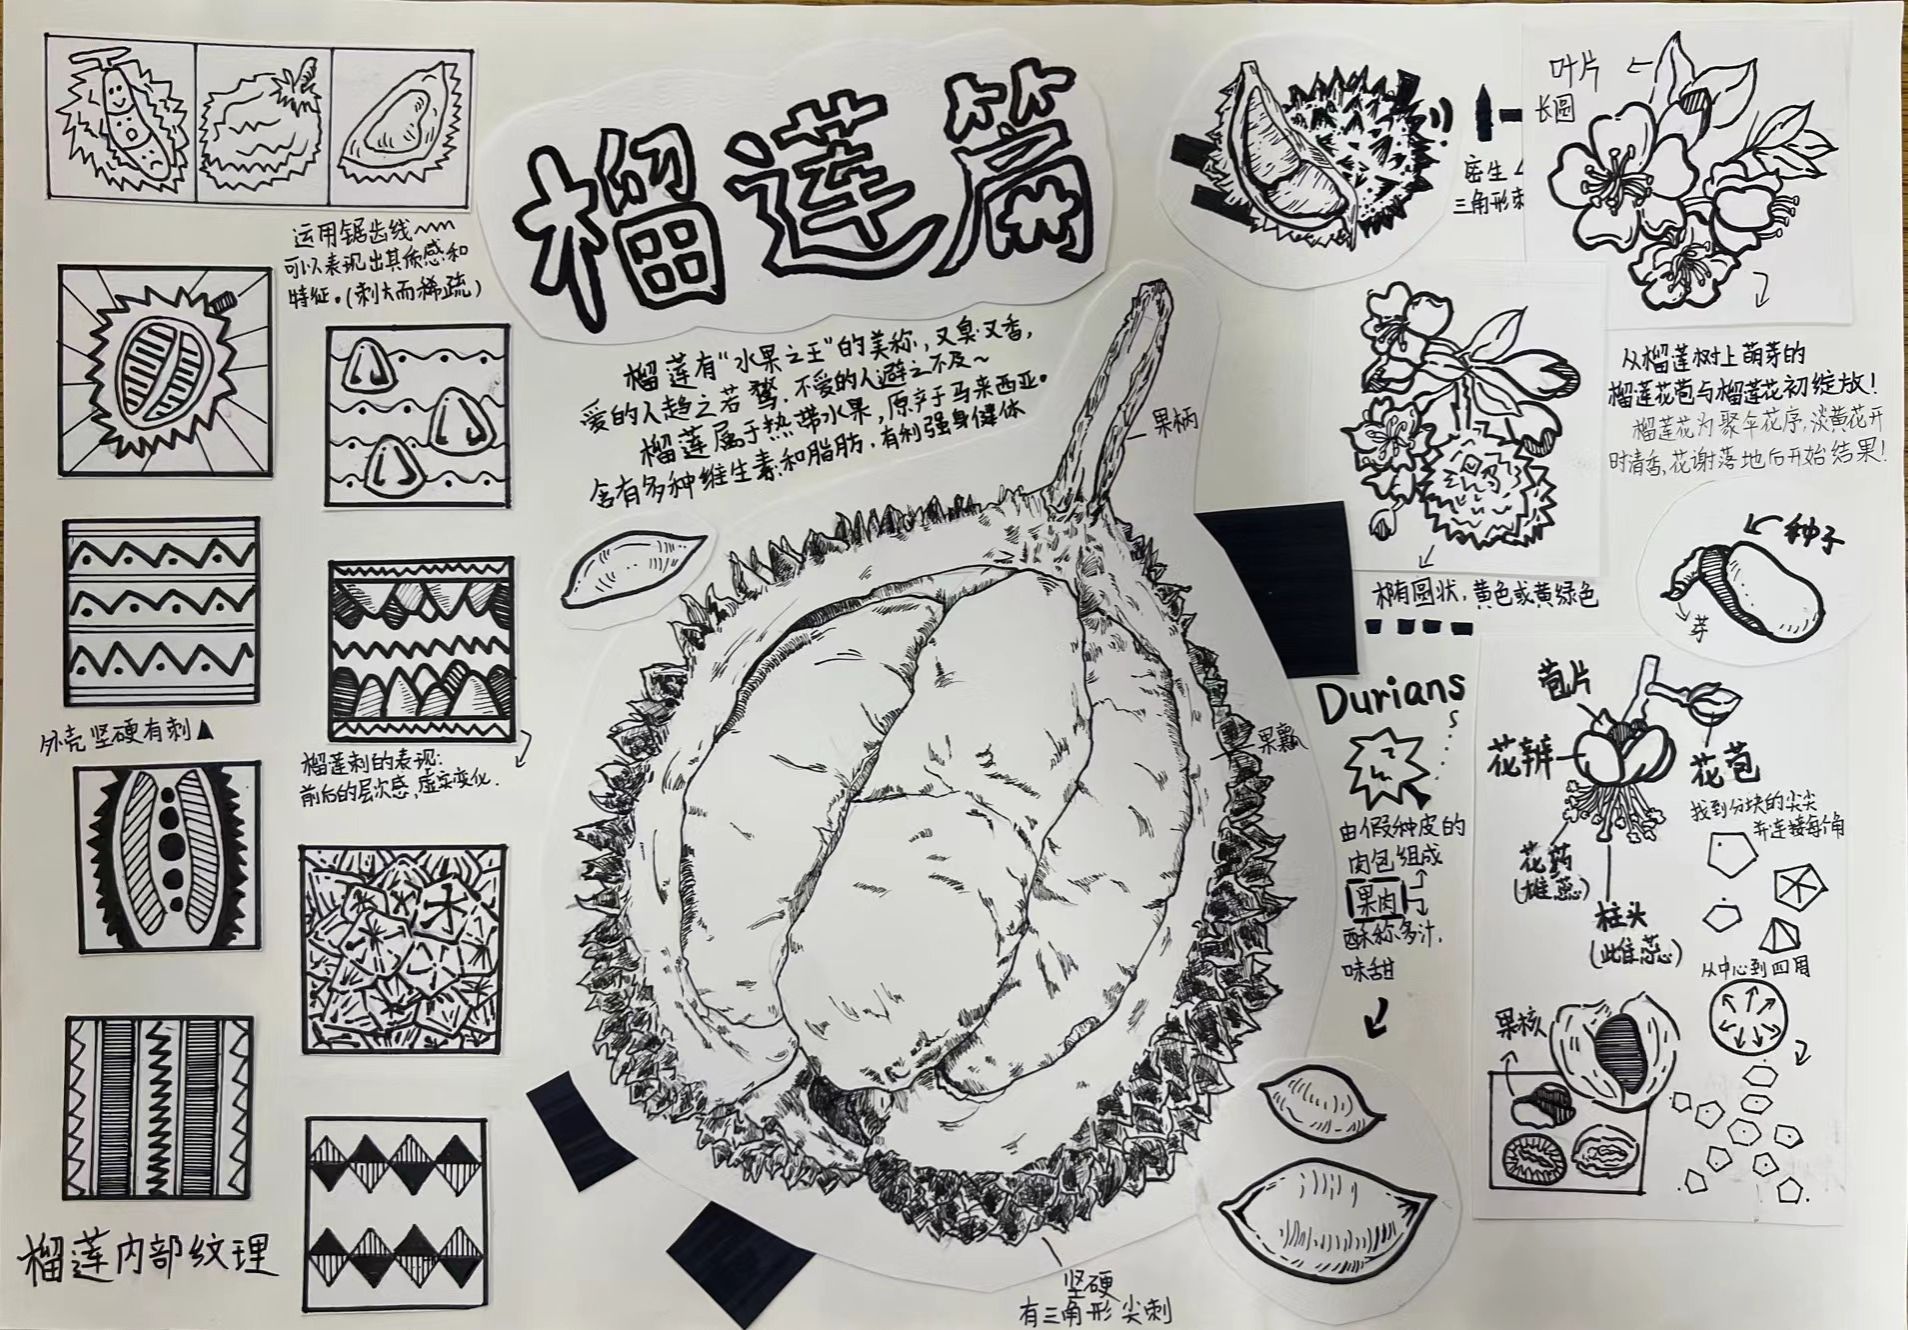 榴莲篇
运用锯齿线
可以表现出其质感和
特征。(刺大而稀疏)
榴莲有“水果之王”的美称,又臭又香,
爱的人趋之若鹜,不爱的人避之不及~
榴莲属于热带水果,原产于马来西亚。
含有多种维生素和脂肪,有利强身健体
外壳坚硬有刺
榴莲刺的表现:
前后的层次感,虚实变化.
榴莲内部纹理
果柄
果瓤
坚硬
有三角形尖刺
密生
三角形刺
叶片
长圆
从榴莲树上萌芽的
榴莲花苞与榴莲花初绽放!
榴莲花为聚伞花序,淡黄花开
时清香,花谢落地后开始结果!
圆状,黄色或黄绿色
种子
芽
Durians
由假种皮的
肉包组成
果肉
酥称多汁.
味甜
苞片
花辨
花苞
花药
(雄蕊)
柱头
(雌蕊)
找到分块的尖尖
并连接每个角
从中心到四周
果核